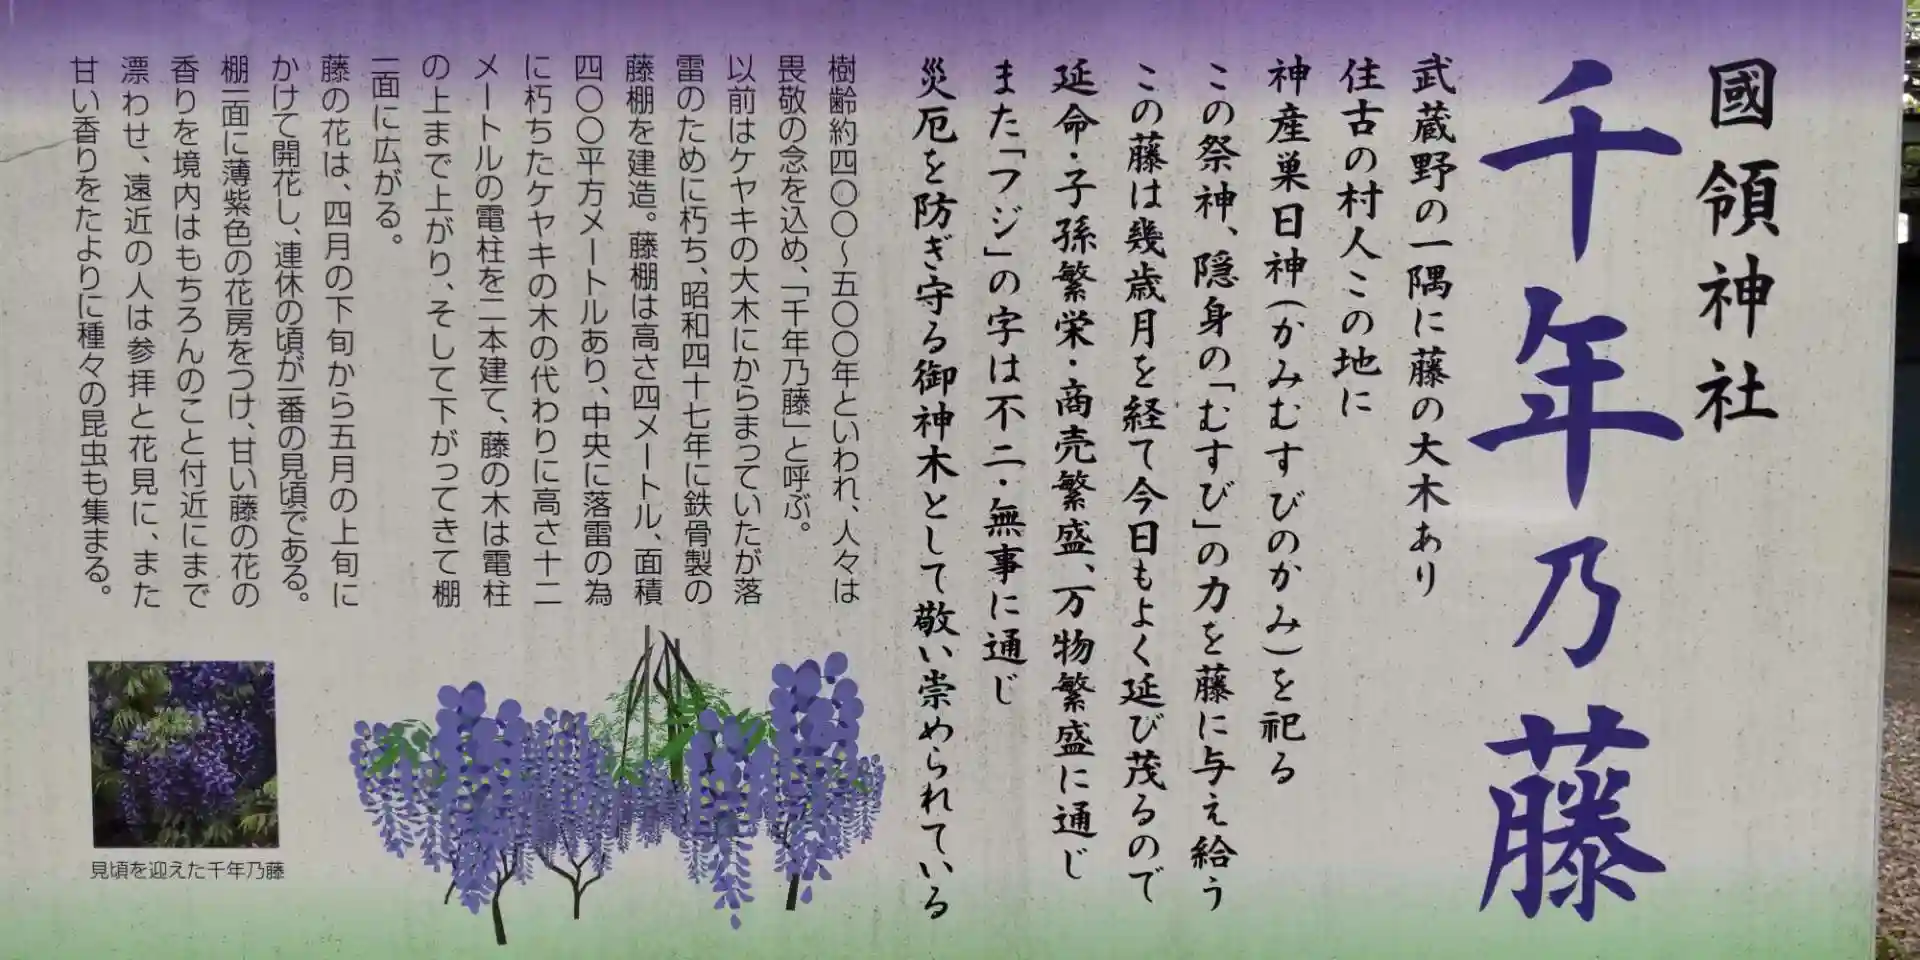 國領神社
千年乃藤
武蔵野の一隅に藤の大木あり
住古の村人この地に
神産巣日神(かみむすびのかみ)を祀る
この祭神、隠身の「むすび」の力を藤に与え給う
この藤は幾歳月を経て今日もよく延び茂るので
延命・子孫繁栄・商売繁盛、万物繁盛に通じ
また「フジ」の字は不二・無事に通じ
災厄を防ぎ守る御神木として敬い崇められている
樹齢約四〇〇～五〇〇年といわれ、人々は
畏敬の念を込め、「千年乃藤」と呼ぶ。
以前はケヤキの大木にからまっていたが落
雷のために朽ち、昭和四十七年に鉄骨製の
藤棚を建造。藤棚は高さ四メートル、面積
四〇〇平方メートルあり、中央に落雷の為
に朽ちたケヤキの木の代わりに高さ十二
メートルの電柱を二本建て、藤の木は電柱
の上まで上がり、そして下がってきて棚
一面に広がる。
藤の花は、四月の下旬から五月の上旬に
かけて開花し、連休の頃が一番の見頃である。
棚一面に薄紫色の花房をつけ、甘い藤の花の
香りを境内はもちろんのこと付近にまで
漂わせ、遠近の人は参拝と花見に、また
甘い香りをたよりに種々の昆虫も集まる。
見頃を迎えた千年乃藤